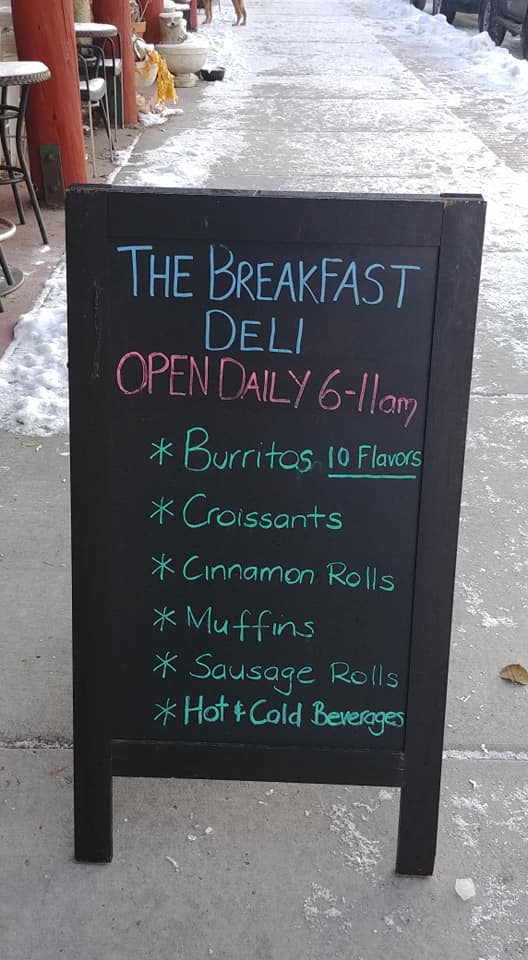 THE BREAKFAST
DELI
OPEN DAILY 6-11am
* Burritos 10 Flavors
* Croissants
* Cinnamon Rolls
* Muffins
* Sausage Rolls
* Hot & Cold Beverages